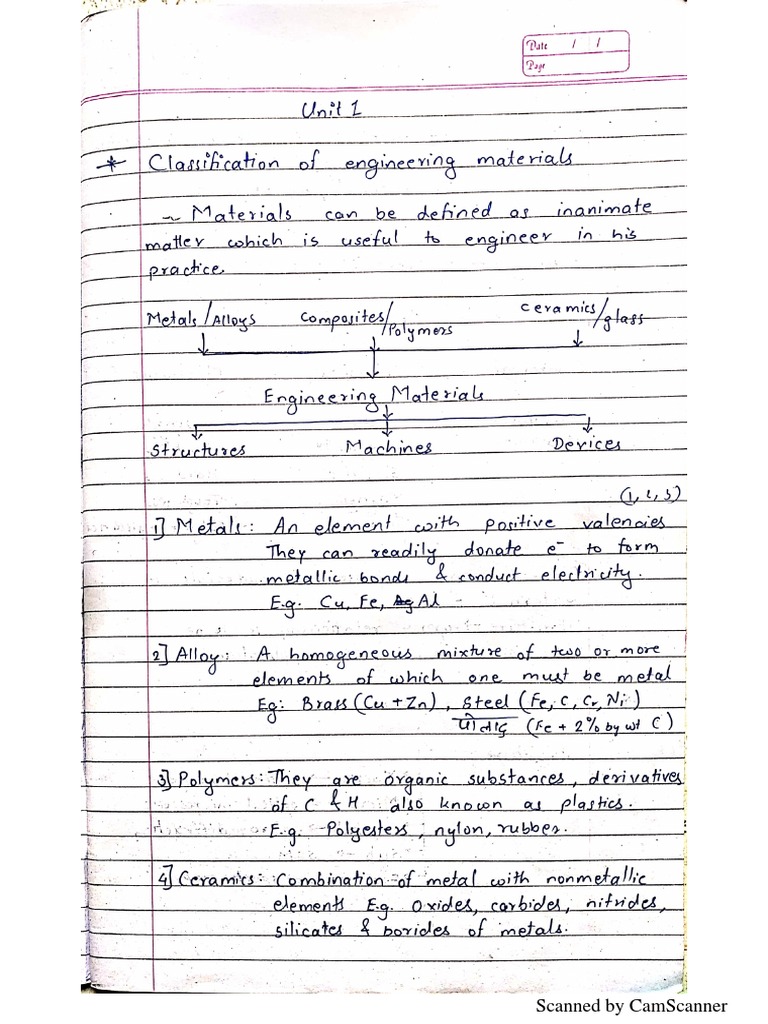 Date / /
Page
Unit 1
* Classification of engineering materials
~ Materials can be defined as inanimate
matter which is useful to engineer in his
practice.
Metals/Alloys Composites/Polymers Ceramics/glass
Engineering Materials
Structures Machines Devices
(1, 2, 3)
1] Metals: An element with positive valencies
They can readily donate e⁻ to form
metallic bonds & conduct electricity.
E.g. Cu, Fe, Al
2] Alloy: A homogeneous mixture of two or more
elements of which one must be metal
Eg: Brass (Cu + Zn), Steel (Fe, C, Cr, Ni)
पोलाद (Fe + 2% by wt C)
3] Polymers: They are organic substances, derivatives
of C & H also known as plastics.
E.g. Polyesters, nylon, rubber.
4] Ceramics: Combination of metal with nonmetallic
elements E.g. Oxides, carbides, nitrides,
silicates & borides of metals.
Scanned by CamScanner